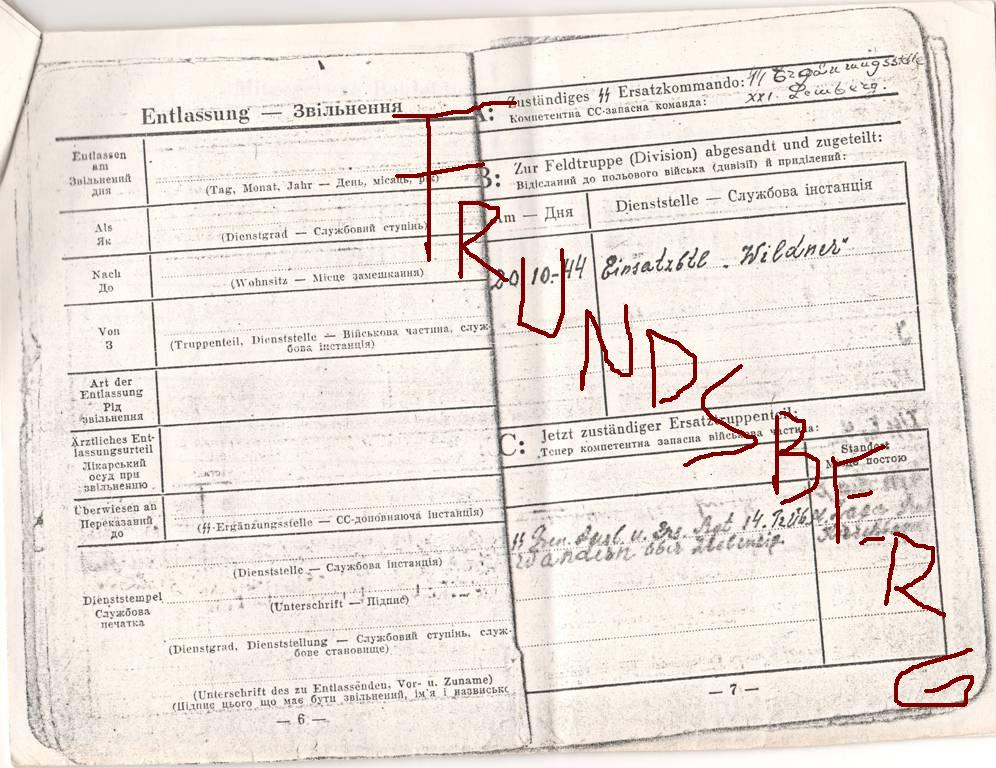 Entlassung — Звільнення
Entlassen
am
Звільнений
дня
(Tag, Monat, Jahr — День, місяць, рік)
Als
Як
(Dienstgrad — Службовий ступінь)
Nach
До
(Wohnsitz — Місце замешкання)
Von
З
(Truppenteil, Dienststelle — Військова частина, служ-
бова інстанція)
Art der
Entlassung
Рід
звільнення
Ärztliches Ent-
lassungsurteil
Лікарський
осуд при
звільненню
Überwiesen an
Переказаний
до
(ᛋᛋ-Ergänzungsstelle — СС-доповняюча інстанція)
(Dienststelle — Службова інстанція)
Dienststempel
Службова
печатка
(Unterschrift — Підпис)
(Dienstgrad, Dienststellung — Службовий ступінь, служ-
бове становище)
(Unterschrift des zu Entlassenden, Vor- u. Zuname)
(Підпис цього що має бути звільнений, ім'я і назвисько
— 6 —
A: Zuständiges ᛋᛋ Ersatzkommando: ᛋᛋ Ergänzungsstelle
Компетентна СС-запасна команда: XXI. Lemberg.
B: Zur Feldtruppe (Division) abgesandt und zugeteilt:
Відісланий до польового війська (дивізії) й приділений:
Am — Дня
Dienststelle — Службова інстанція
20 10.-44 Einsatzbtl „Wildner"
C: Jetzt zuständiger Ersatztruppenteil:
Тепер компетентна запасна військова частина:
Standort
Місце постою
ᛋᛋ Gren. Ausb. u. Ers. Rgt. 14.
Wandern über
— 7 —
TRUNDSBFRG